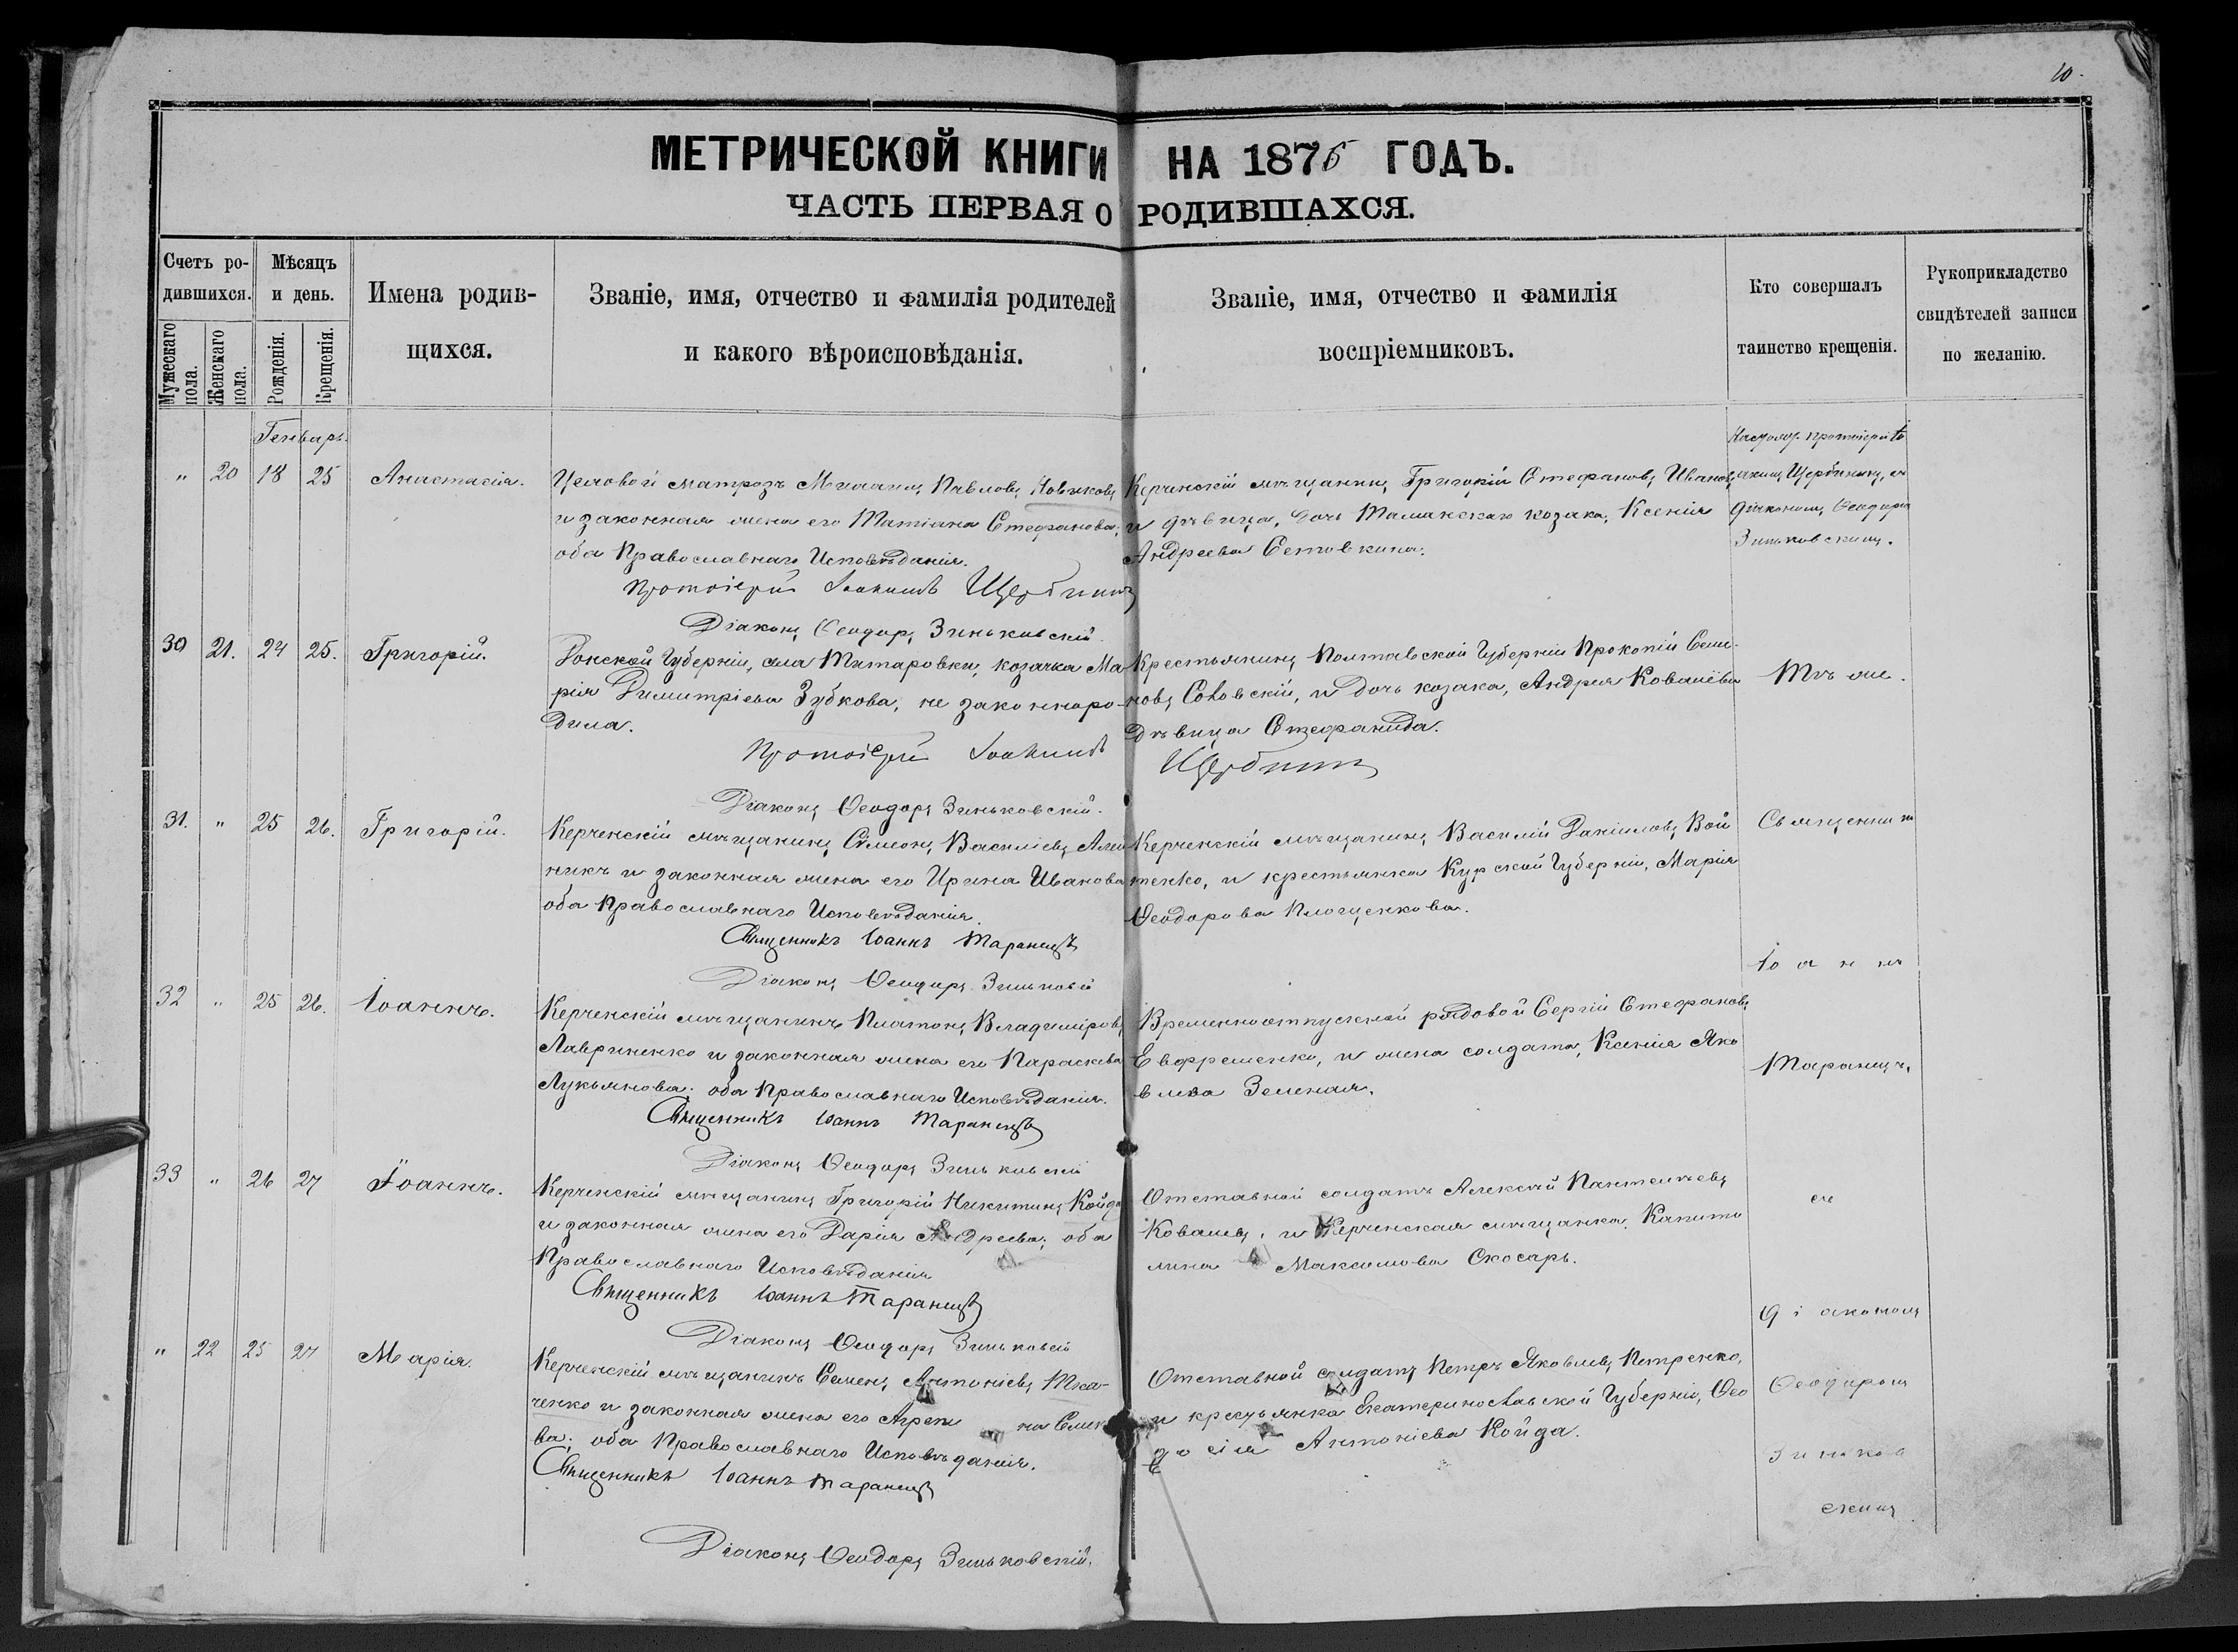 10.
МЕТРИЧЕСКОЙ КНИГИ НА 1876 ГОДЪ.
ЧАСТЬ ПЕРВАЯ О РОДИВШАХСЯ.
Счетъ родившихся.
Мужескаго пола.
Женскаго пола.
Мѣсяцъ и день.
Рожденія.
Крещенія.
Имена родив-
щихся.
Званіе, имя, отчество и фамилія родителей
и какого вѣроисповѣданія.
Званіе, имя, отчество и фамилія
воспріемниковъ.
Кто совершалъ
таинство крещенія.
Рукоприкладство
свидѣтелей записи
по желанію.
Генварь.
" 20 18 25 Анастасія.
матрозъ Михаилъ Павловъ Новиковъ
и законная жена его Татіана Стефанова;
оба Православнаго Исповѣданія.
Протоіерей Іоакимъ Щербининъ
Діаконъ Ѳеодоръ Зиньковскій
Керченскій мѣщанинъ Григорій Стефановъ Ивановъ,
и дѣвица, дочь Таманскаго козака, Ксенія
Андреева Сетовкина.
протоіерей Іо
акимъ Щербининъ, съ
діакономъ Ѳеодоромъ
Зиньковскимъ.
30 21. 24 25. Григорій.
Донской Губерніи, села Татаровки, козачка Ма
рія Димитріева Зубкова, не законноро-
дила.
Протоіерей Іоакимъ Щербининъ
Діаконъ Ѳеодоръ Зиньковскій.
Крестьянинъ Полтавской Губерніи Прокопій Семе-
новъ Соковскій, и дочь козака, Андрея Ковалёва
дѣвица Стефанида.
Тѣ же.
31. " 25 26. Григорій.
Керченскій мѣщанинъ Симеонъ Василіевъ Алей
никъ и законная жена его Ирина Иванова
оба Православнаго Исповѣданія.
Священникъ Іоаннъ Таранецъ
Діаконъ Ѳеодоръ Зиньковскій
Керченскій мѣщанинъ Василій Даніиловъ Вой
тенко, и крестьянка Курской Губерніи, Марія
Ѳеодорова Плющенкова.
Священникъ
Іоаннъ
32 " 25 26. Іоаннъ.
Керченскій мѣщанинъ Платонъ Владиміровъ
Лавриненко и законная жена его Параскева
Лукьянова; оба Православнаго Исповѣданія.
Священникъ Іоаннъ Таранецъ
Діаконъ Ѳеодоръ Зиньковскій
Временноотпускной рядовой Сергій Стефановъ
Евфременко, и жена солдата, Ксенія Яко
влева Зеленая.
Таранецъ,
33 " 26 27 Іоаннъ.
Керченскій мѣщанинъ Григорій Никитинъ Койда
и законная жена его Дарія Андреева; оба
Православнаго Исповѣданія
Священникъ Іоаннъ Таранецъ
Діаконъ Ѳеодоръ Зиньковскій
Отставной солдатъ Алексѣй Пантелѣевъ
Ковалевъ, и Керченская мѣщанка, Капито
лина Максимова Скосарь.
съ
діакономъ
" 22 25 27 Марія.
Керченскій мѣщанинъ Семенъ Антоніевъ Тка-
ченко и законная жена его
ва; оба Православнаго Исповѣданія.
Священникъ Іоаннъ Таранецъ
Діаконъ Ѳеодоръ Зиньковскій.
Отставной солдатъ Петръ Яковлевъ Петренко,
и крестьянка Екатеринославской Губерніи, Ѳео
досія Антоніева Койда.
Ѳеодоромъ
Зиньков
скимъ